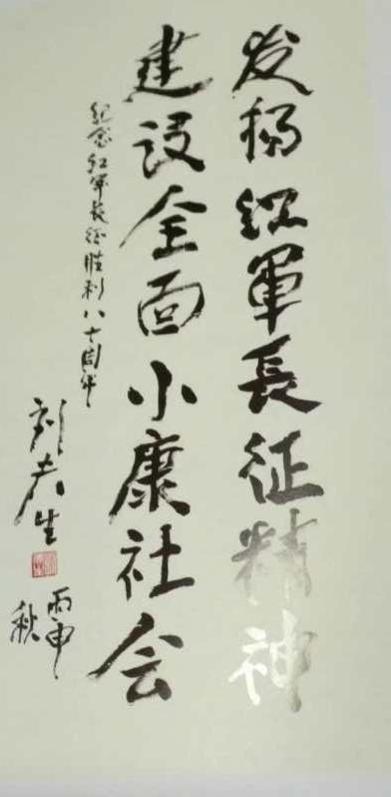 发扬红軍長征精神
建设全面小康社会
纪念红军長征胜利八十周年
刘夫生
丙申
秋